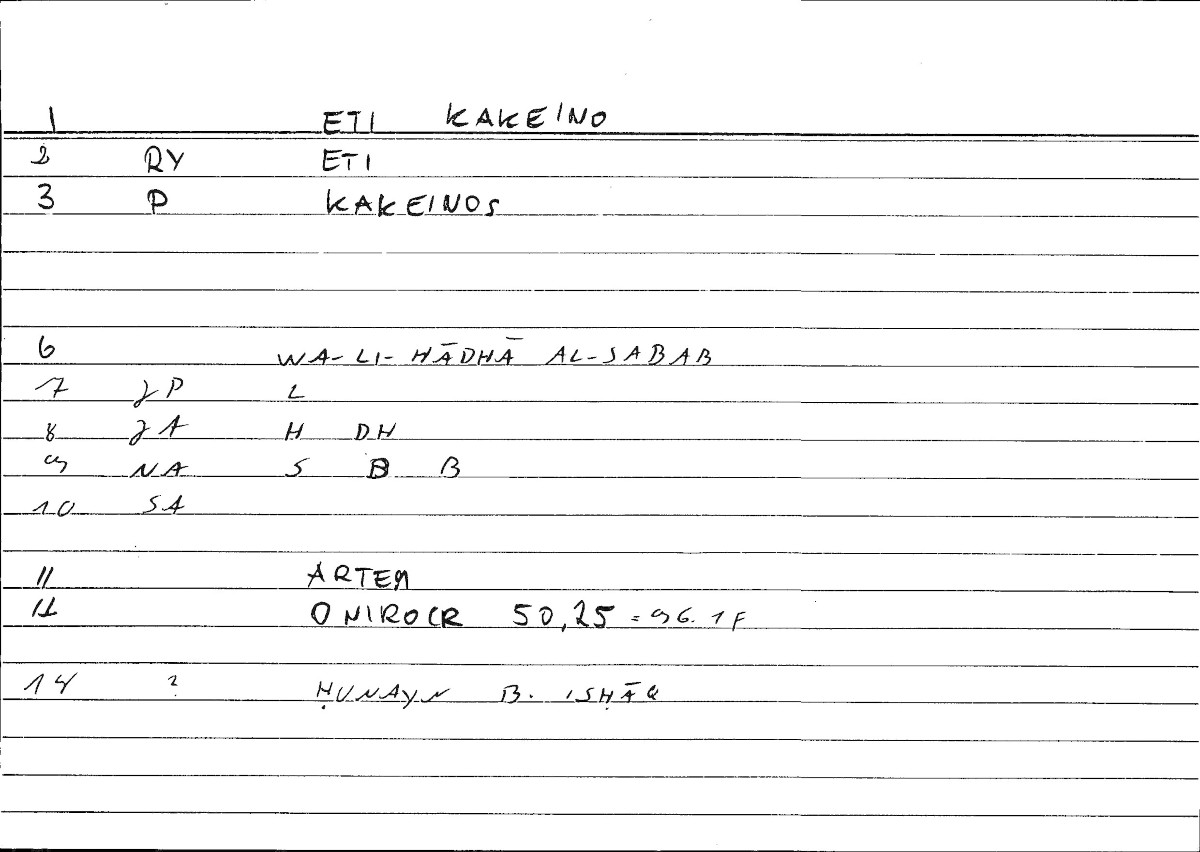 1 ETI KAKEINO
2 RY ETI
3 P KAKEINOS
6 WA-LI-HĀDHĀ AL-SABAB
7 JP L
8 JA H DH
9 NA S B B
10 SA
11 ARTEM
12 ONIROCR 50,25 = 96.1F
14 ? ḤUNAYN B. ISḤĀQ